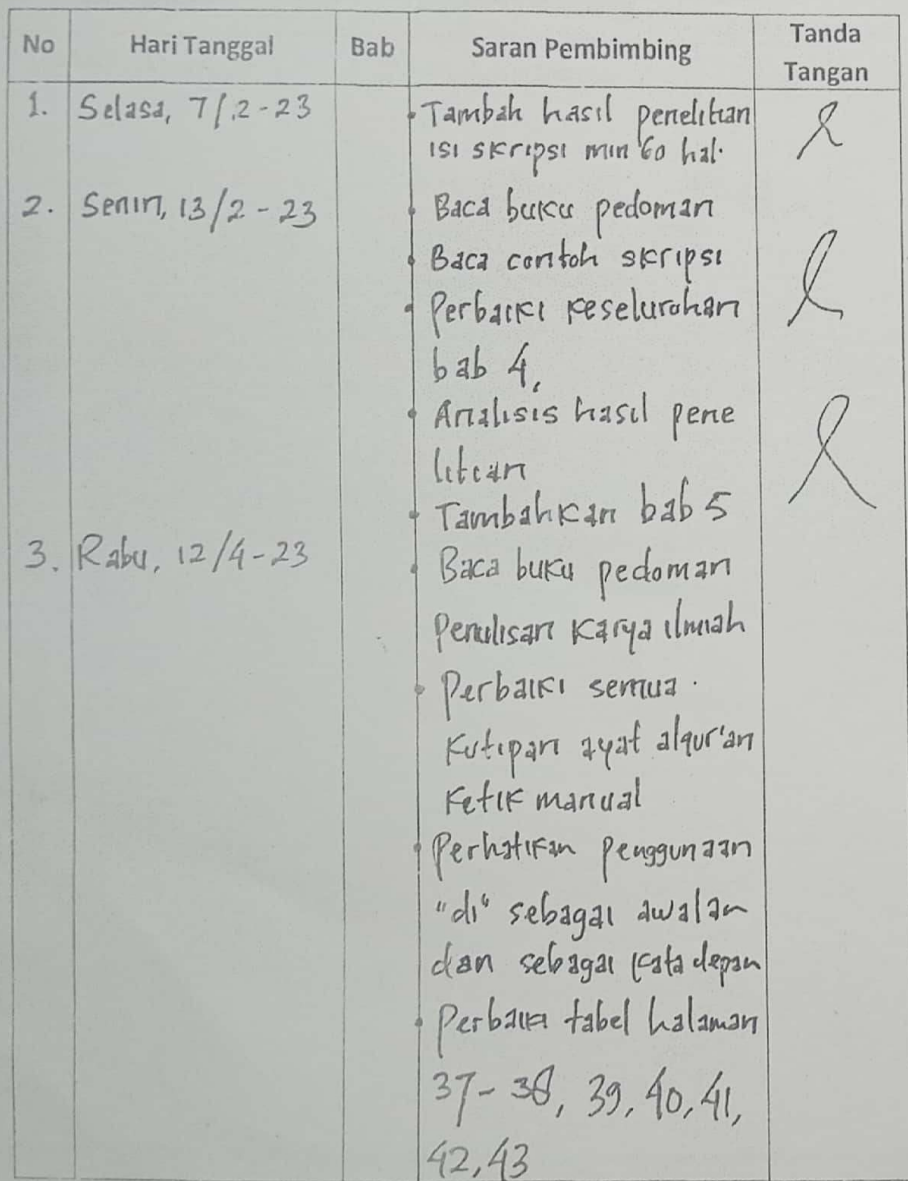 No Hari Tanggal Bab Saran Pembimbing Tanda Tangan
1. Selasa, 7/2-23 Tambah hasil penelitian
isi skripsi min 60 hal.
2. Senin, 13/2-23 Baca buku pedoman
Baca contoh skripsi
Perbaiki keselurohan
bab 4,
Analisis hasil pene
litian
Tambahkan bab 5
3. Rabu, 12/4-23 Baca buku pedoman
Penulisan karya ilmiah
Perbaiki semua.
Kutipan ayat alqur'an
Ketik manual
Perhatikan penggunaan
"di" sebagai awalan
dan sebagai kata depan
Perbaiki tabel halaman
37-38, 39, 40, 41,
42, 43